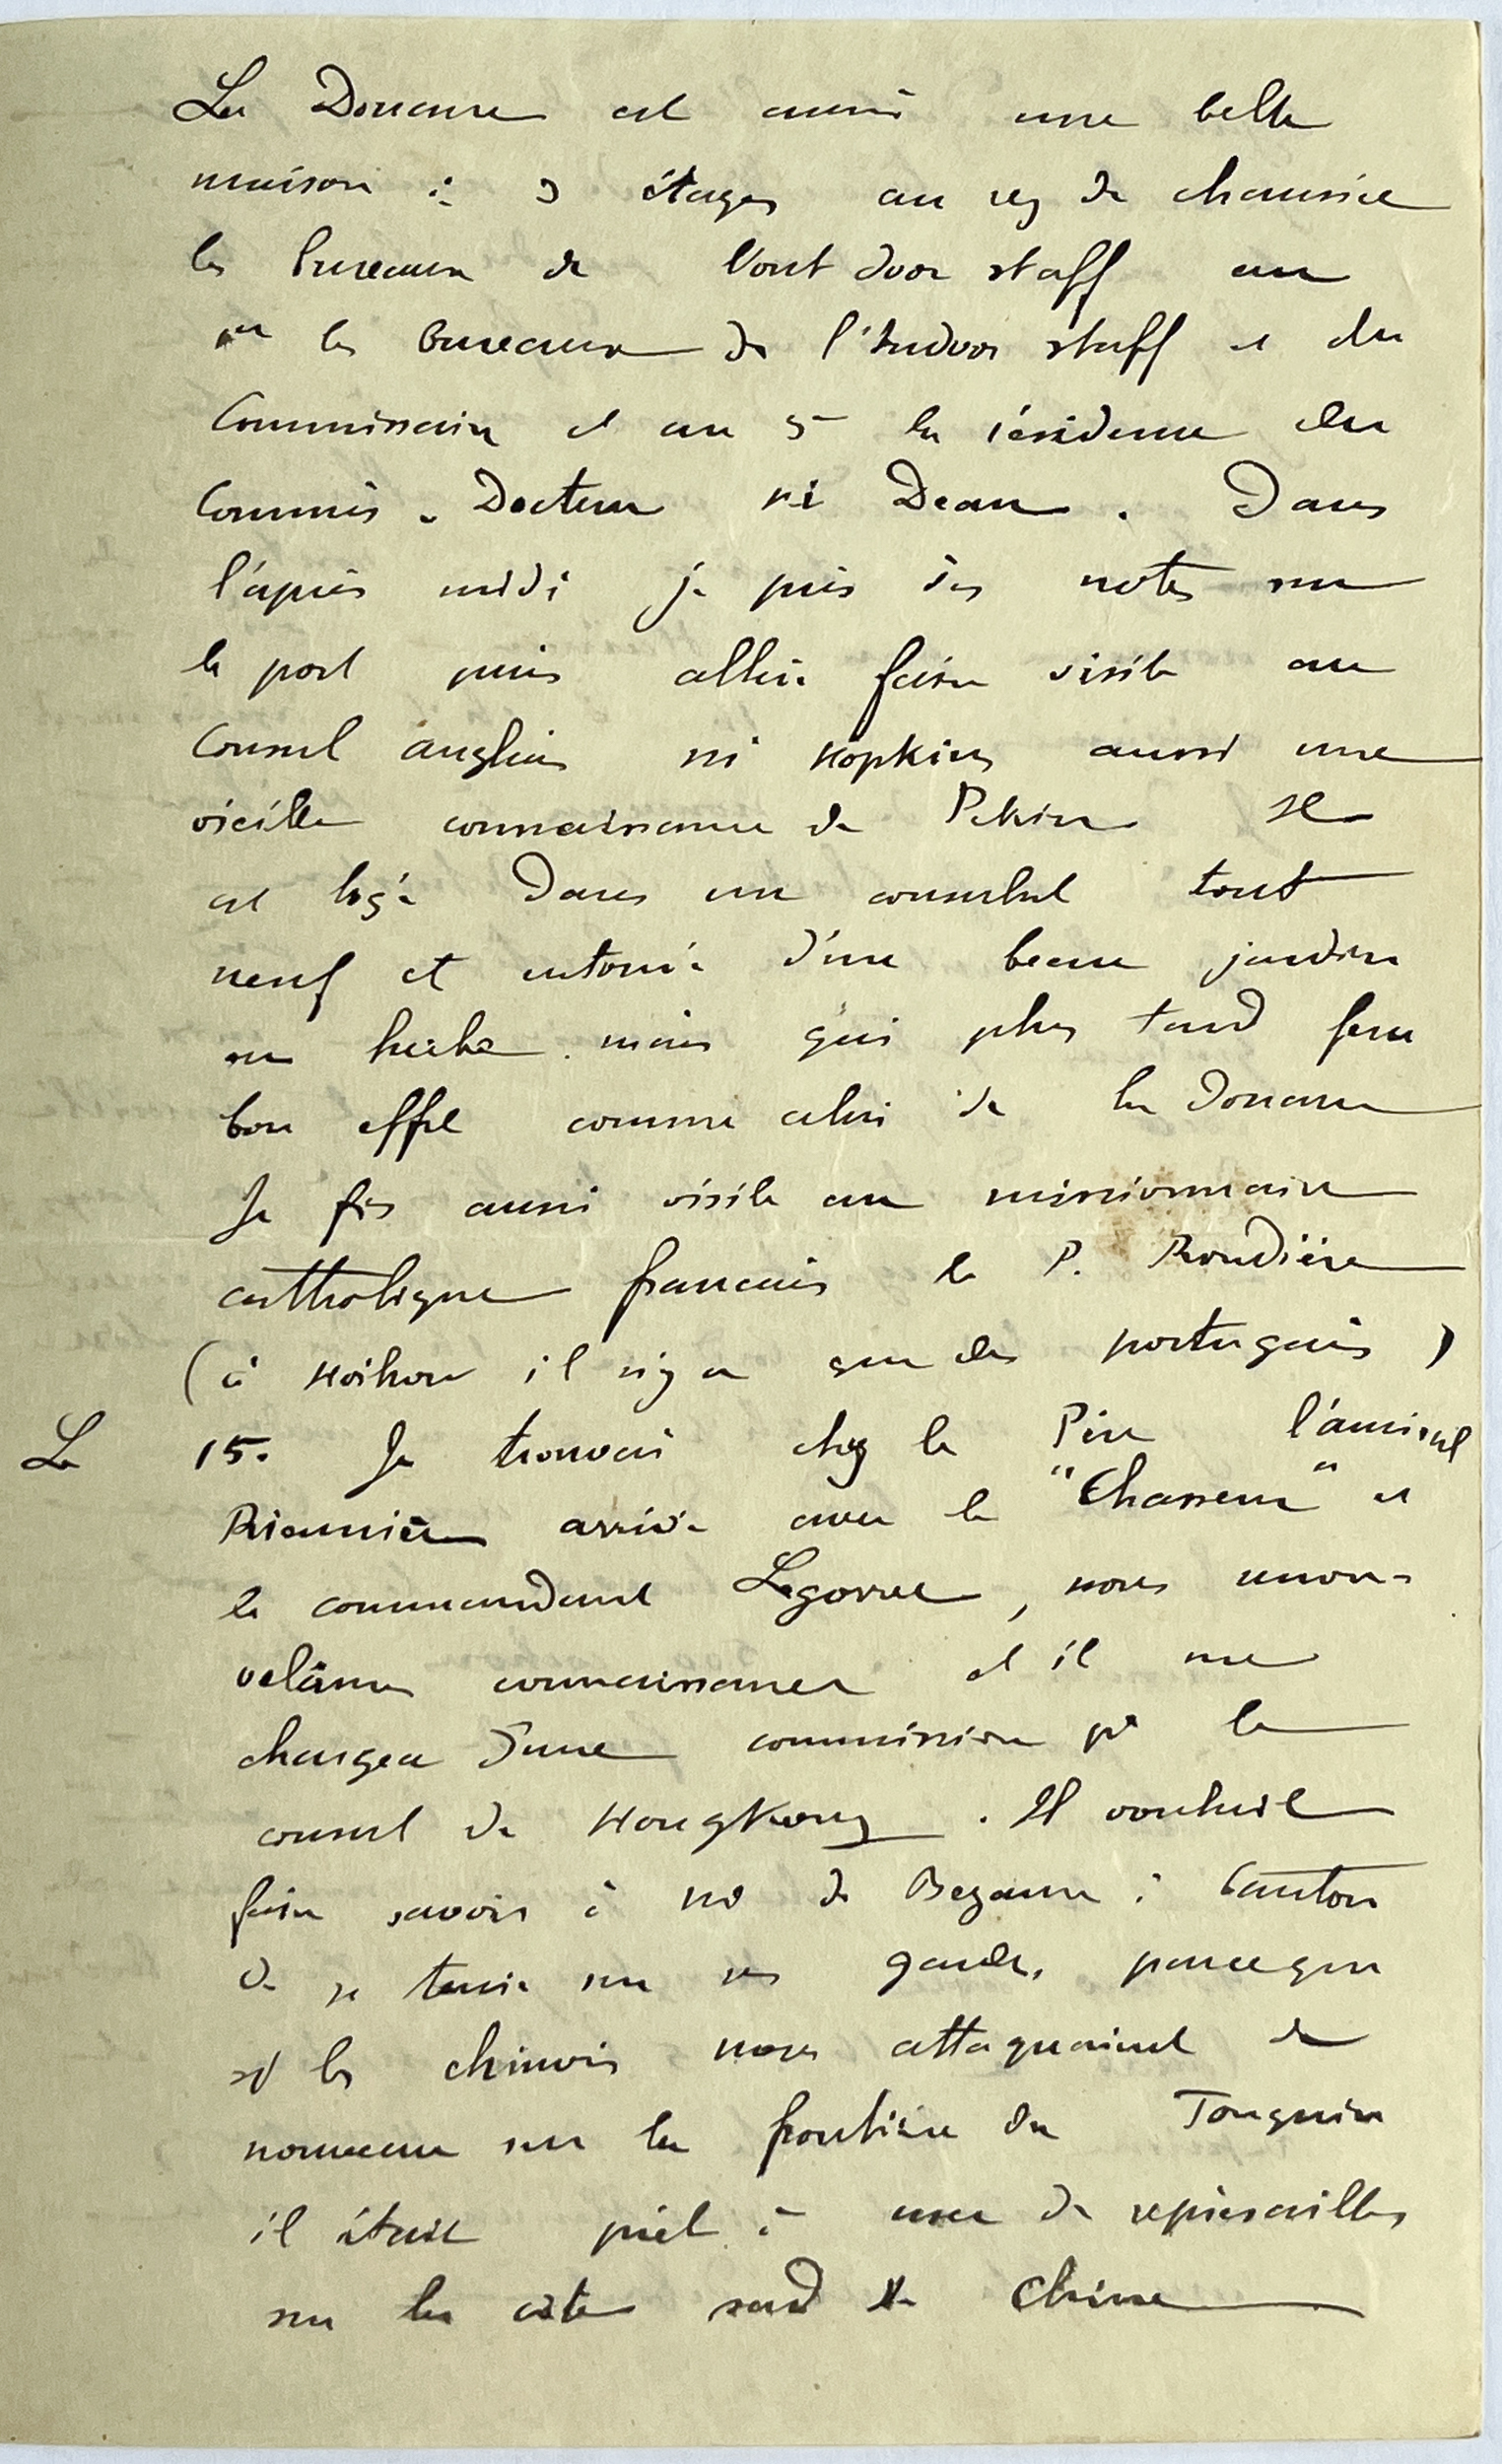 La Douane est aussi une belle
maison à 3 étages au rez de chaussée
les bureaux de l'out door staff au
1er les bureaux de l'Indoor staff et du
Commissaire et au la résidence du
Commis. Docteur Mr Dean. Dans
l'après midi je pris des notes sur
le port puis allai faire visite au
Consul anglais Mr Hopkins aussi une
vieille connaissance de Pekin Il
est logé dans un consulat tout
neuf et entouré d'une beau jardin
en herbe mais qui plus tard fera
bon effet comme celui de la Douane
Je fis aussi visite au missionnaire
catholique francais le P. Roudière
(à Hoihow il n'y a que des portugais)
Le 15. Je trouvai chez le Père l'amiral
Rieunier arrivé avec le "Chasseur" et
le commandant , nous renou-
velâmes connaissance et il me
chargea d'une commission pr le
consul de HongKong. Il voulait
faire savoir à Mr de Bezaure à Canton
de se tenir sur ses gardes, parceque
si les chinois nous attaquaient de
nouveau sur la frontière du Tonquin
il était prêt à user de represailles
sur la côte sud de Chine